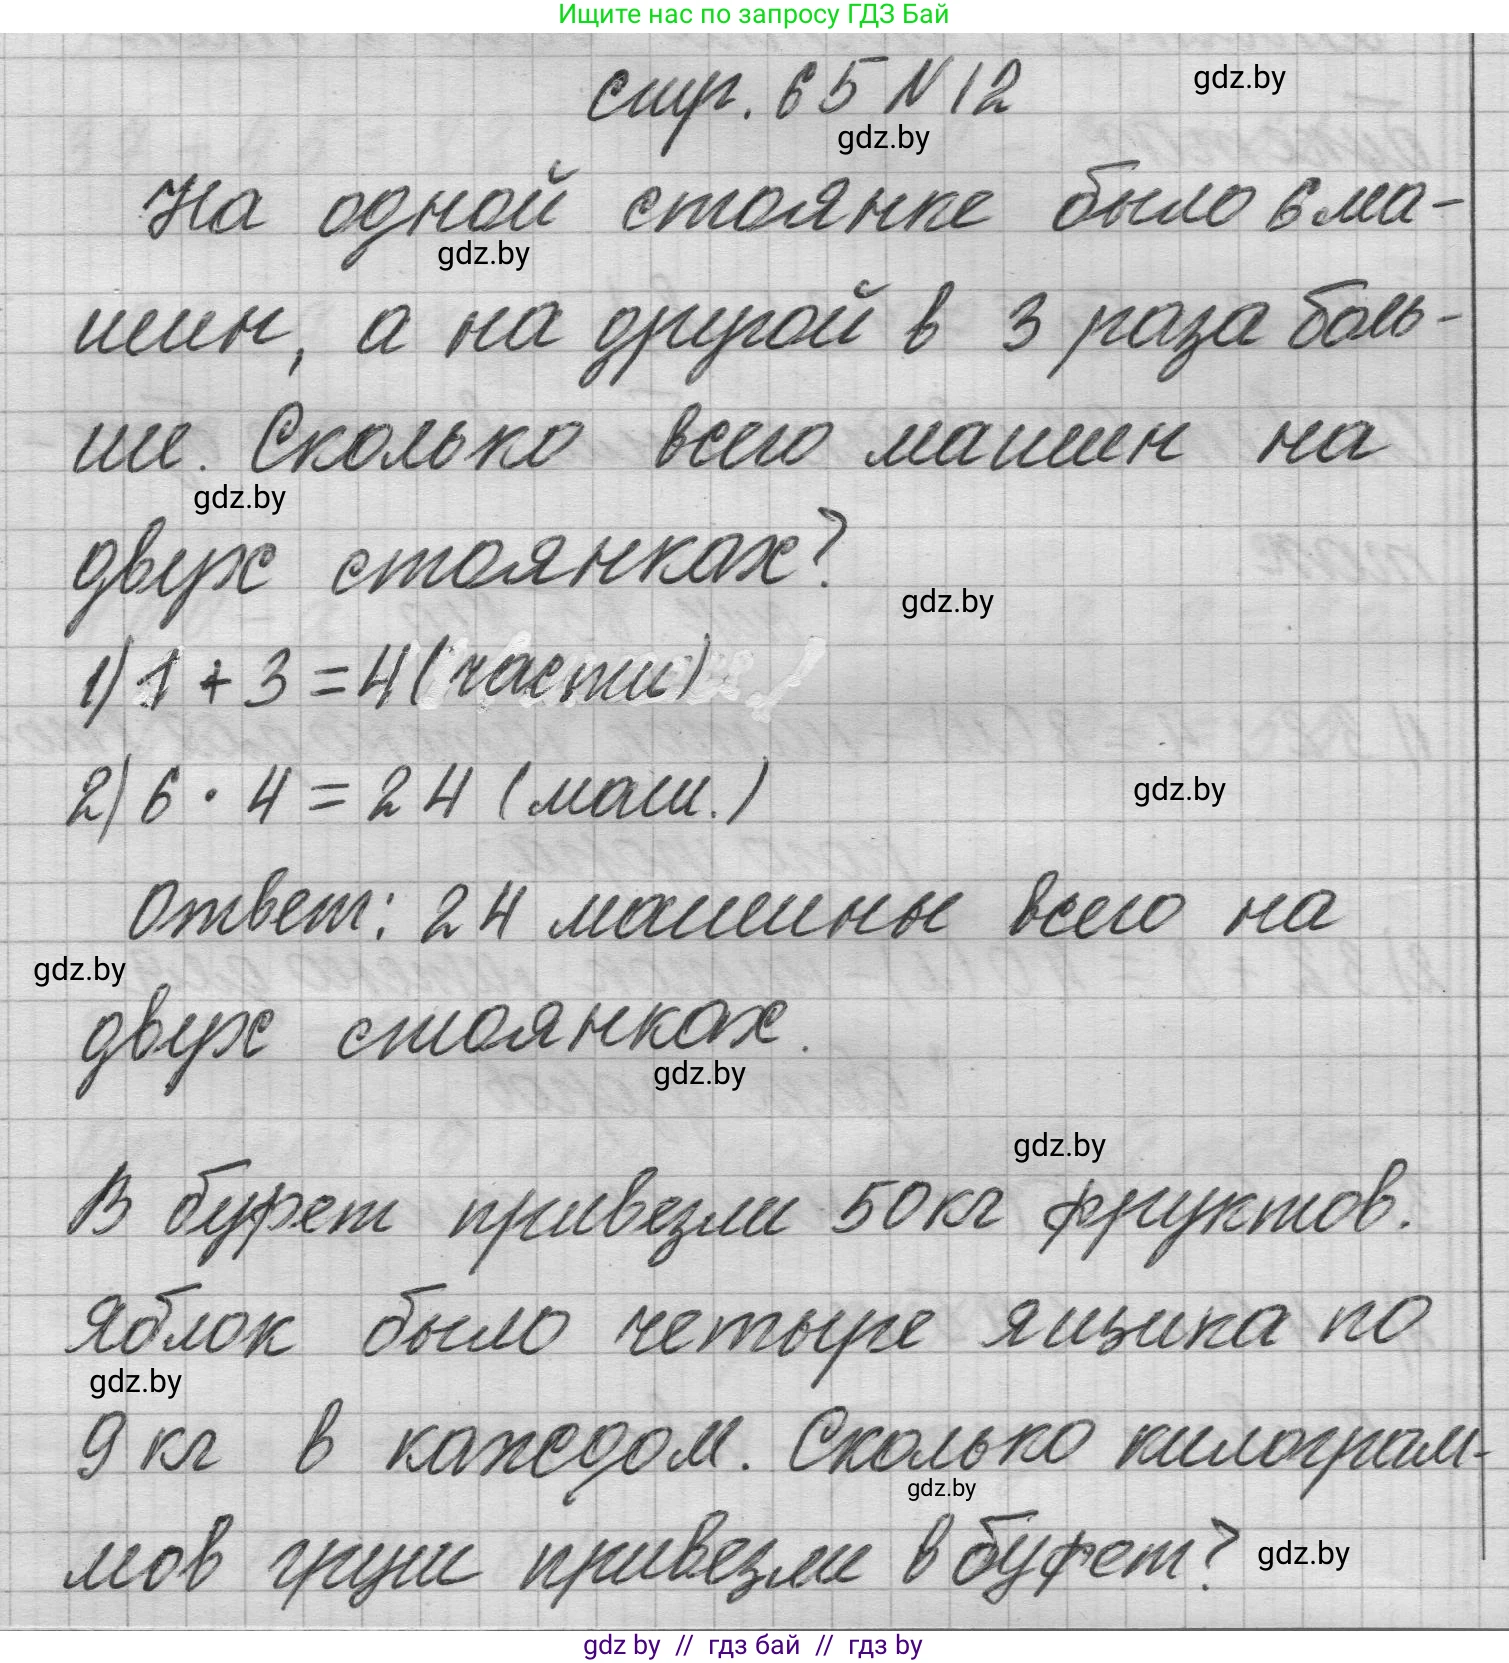 Ищите нас по запросу ГДЗ Бай
стр. 65 N 12
gdz.by
gdz.by
На одной стоянке было 6 ма-
gdz.by
шин, а на другой в 3 раза боль-
ше. Сколько всего машин на
gdz.by
двух стоянках?
gdz.by
1) 1 + 3 = 4 (части)
2) 6 · 4 = 24 (маш.)
gdz.by
Ответ: 24 машины всего на
gdz.by
двух стоянках.
gdz.by
gdz.by
В буфет привезли 50 кг фруктов.
Яблок было четыре ящика по
gdz.by
9 кг в каждом. Сколько килограм-
gdz.by
мов груш привезли в буфет?
gdz.by
gdz by // гдз бай // гдз by